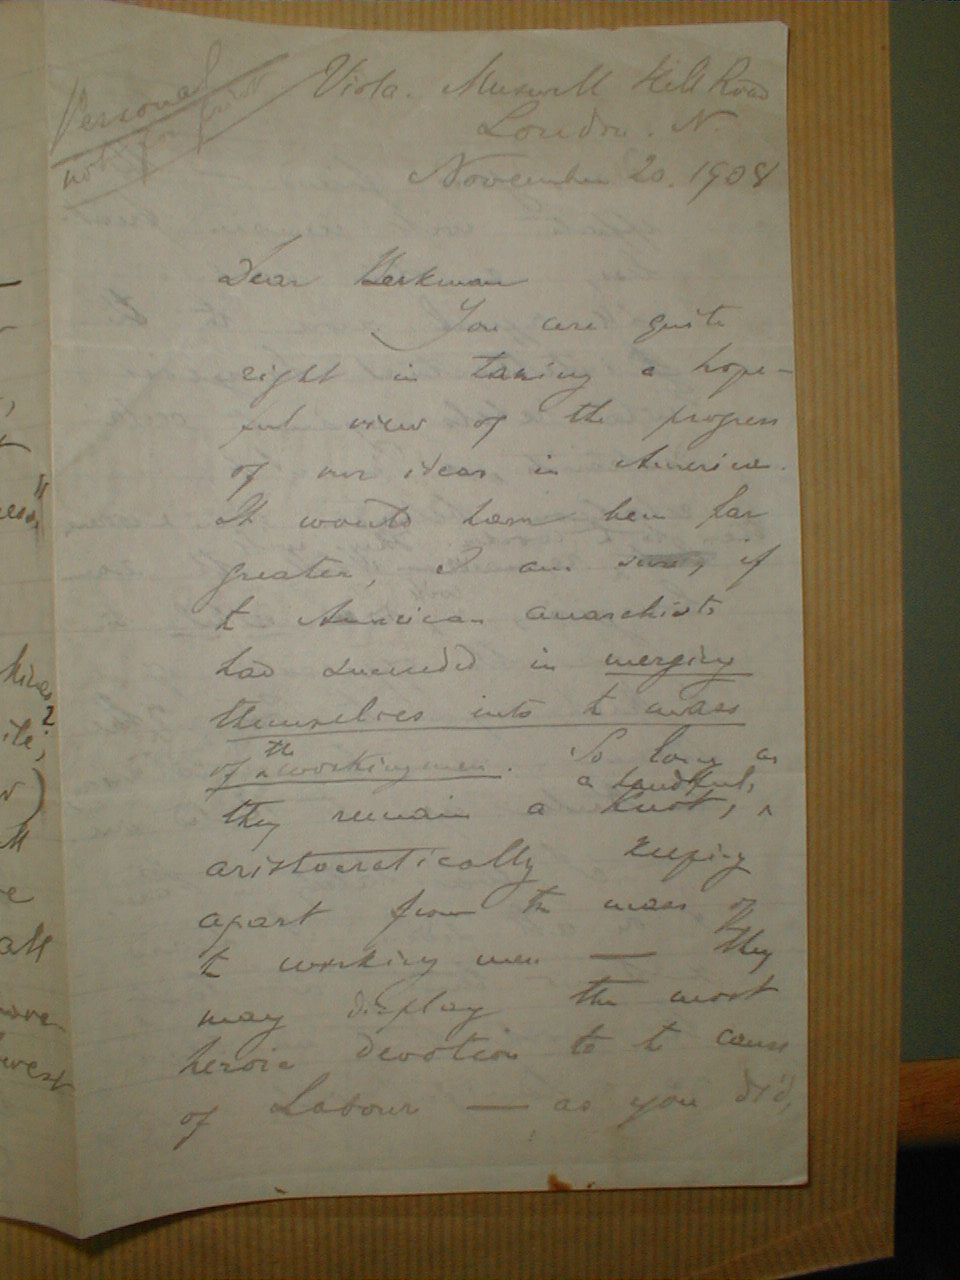 Personal
not for print
Viola. Muswell Hill Road
London. N.
November 20. 1908
Dear Berkman
You are quite
right in taking a hope-
ful view of the progress
of our ideas in America.
It would have been far
greater, I am sure, if
t American anarchists
had succeeded in merging
themselves into t mass
of the workingmen. So long as
they remain a knot, a handful,
aristocratically keeping
apart from the mass of
t working men — they
may display the most
heroic devotion to t cause
of Labour — as you did,
all